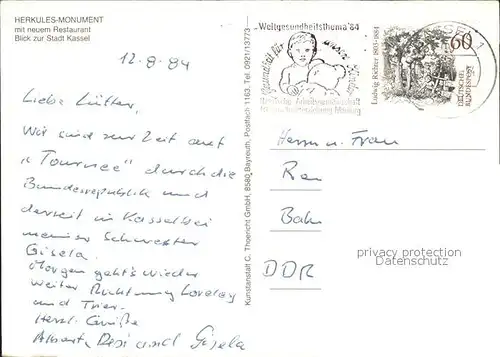 HERKULES-MONUMENT
mit neuem Restaurant
Blick zur Stadt Kassel
12.8.84
Liebe
Wir sind zur Zeit auf
"Tournee" durch die
Bundesrepublik und
derzeit in Kassel bei
meiner Schwester
Gisela.
Morgen geht's wieder
weiter Richtung Loreley
und Trier.
Herzl. Grüße
Albert, Resi und Gisela
Kunstanstalt C. Thoericht GmbH, 8580 Bayreuth, Postfach 1163, Tel. 0921/13773
Weltgesundheitsthema '84
Gesundheit für unsere Kinder
Ludwig Richter 1803-1884
60
DEUTSCHE
BUNDESPOST
Herrn u. Frau
DDR
privacy protection
Datenschutz